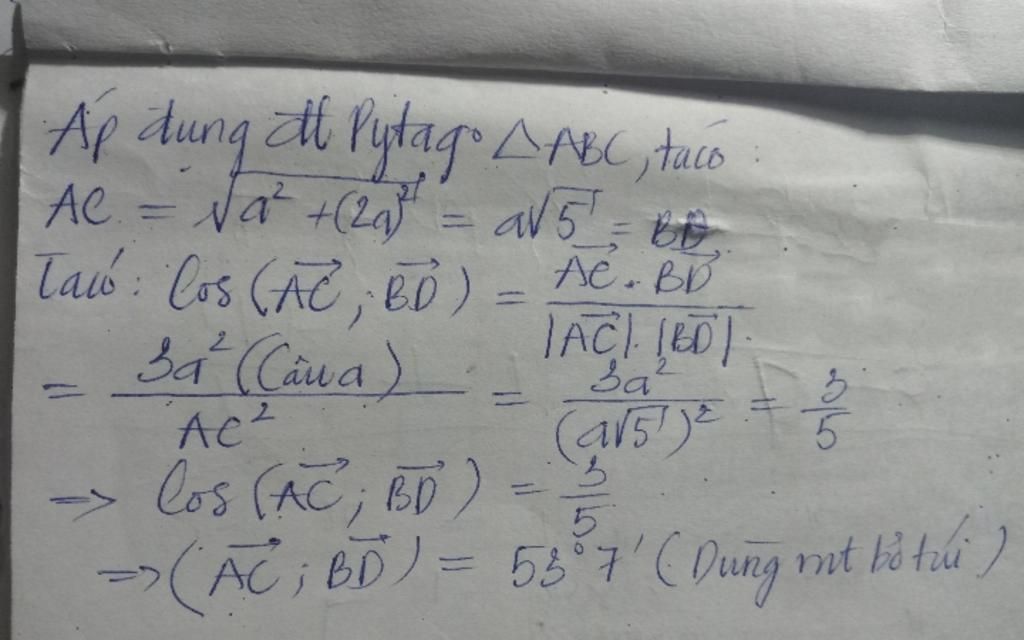 Áp dụng đl Pytago △ABC, ta có :
AC = √a² + (2a)² = a√5 = BD
Ta có : Cos (AC→ ; BD→) = AC→ . BD→ / |AC→| . |BD→| .
= 3a² (Câu a) / AC² = 3a² / (a√5)² = 3/5
=> Cos (AC→ ; BD→) = 3/5
=> (AC→ ; BD→) = 53°7' (Dùng mt bỏ túi)